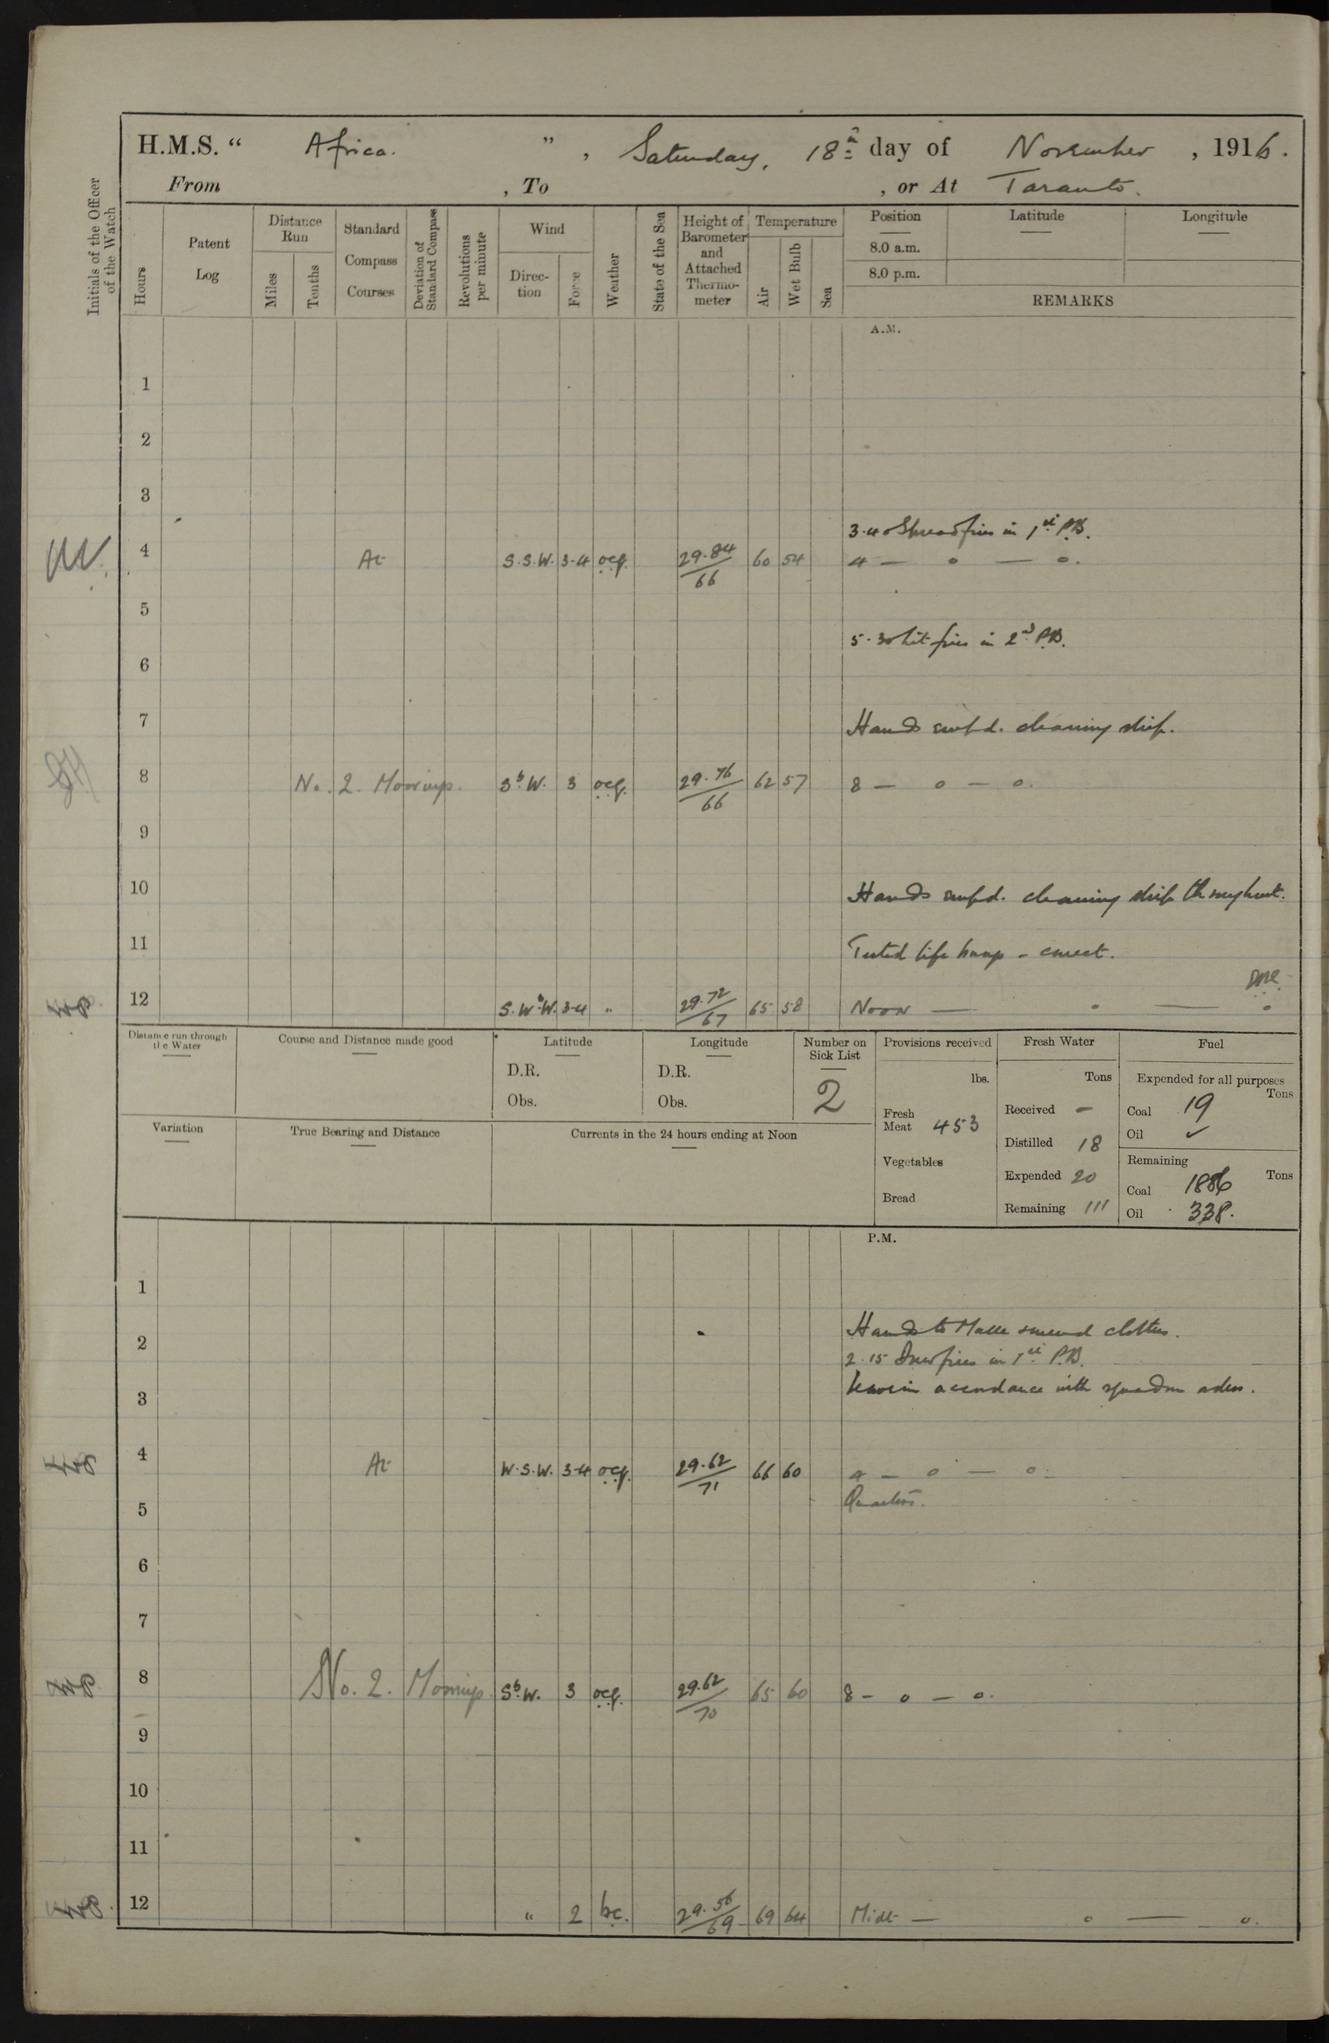 H.M.S. “ Africa. ” , Saturday, 18th day of November , 1916.
From , To , or At Taranto.
Initials of the Officer of the Watch
Hours
Patent Log
Distance Run
Miles
Tenths
Standard Compass Courses
Deviation of Standard Compass
Revolutions per minute
Wind
Direc-tion
Force
Weather
State of the Sea
Height of Barometer and Attached Thermo-meter
Temperature
Air
Wet Bulb
Sea
Position
8.0 a.m.
8.0 p.m.
Latitude
Longitude
REMARKS
A.M.
1
2
3
3.40 Spread fires in 1st P.B.
4 At S.S.W. 3-4 ocq. 29.84/66 60 54 4 — o — o.
5
5.30 Lit fires in 2nd P.B.
6
7 Hands empd. cleaning ship.
8 No. 2. Moorings. SbW. 3 ocq. 29.76/66 62 57 8 — o — o.
9
10 Hands empd. cleaning ship throughout.
11 Tested life buoys – correct.
12 S.WbW. 3-4 " 29.72/67 65 58 Noon — o — o
Distance run through the Water
Course and Distance made good
Latitude
D.R.
Obs.
Longitude
D.R.
Obs.
Number on Sick List
2
Provisions received
lbs.
Fresh Meat 453
Vegetables
Bread
Fresh Water
Tons
Received –
Distilled 18
Expended 20
Remaining 111
Fuel
Expended for all purposes
Tons
Coal 19
Oil ✓
Remaining
Tons
Coal 1886
Oil 338.
Variation
True Bearing and Distance
Currents in the 24 hours ending at Noon
P.M.
1
2 Hands to Make & mend clothes.
2.15 Drew fires in 1st P.B.
3 Leave in accordance with squadron orders.
4 At W.S.W. 3-4 ocq. 29.62/71 66 60 4 — o — o.
Quarters.
5
6
7
8 No. 2. Moorings SbW. 3 ocq. 29.62/70 65 60 8 — o — o.
9
10
11
12 " 2 bc. 29.56/69 69 64 Midt — o — o.